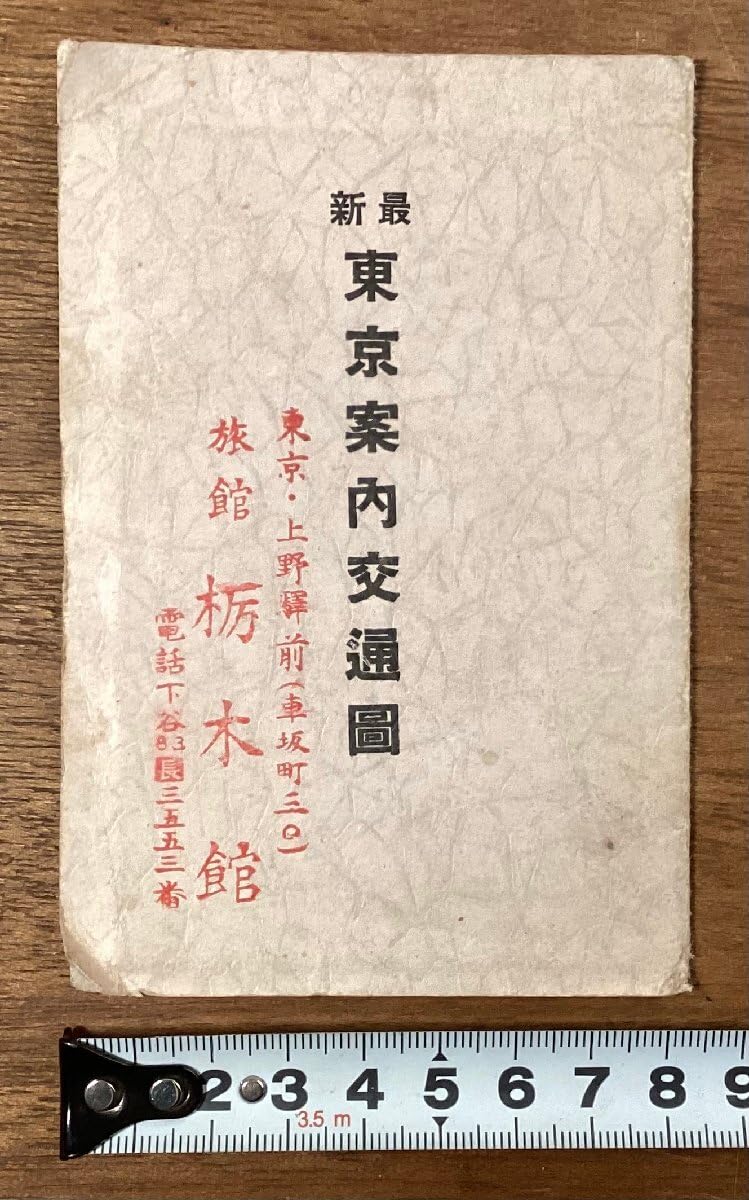 最新
東京案内交通圖
東京・上野驛前(車坂町三〇)
旅館 栃木館
電話下谷83長三五五三番
2 3 4 5 6 7 8 9
3.5 m